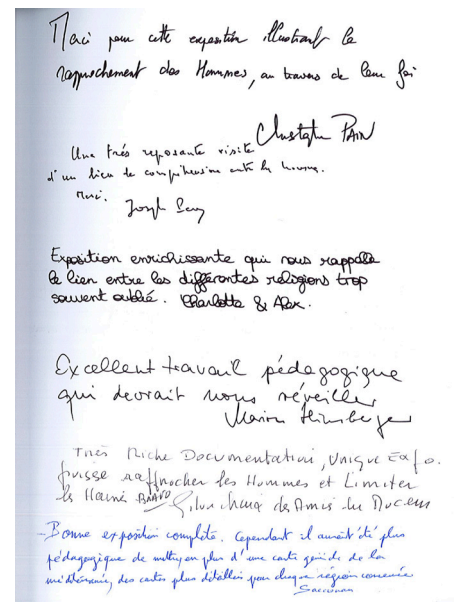 Merci pour cette exposition illustrant le
rapprochement des Hommes, au travers de leur foi
Christophe PAIN
Une très reposante visite
d'un lieu de compréhension entre les hommes.
Merci.
Joseph
Exposition enrichissante qui nous rappelle
le lien entre les différentes religions trop
souvent oublié. Charlotte & Alex.
Excellent travail pédagogique
qui devrait nous réveiller
Marion
Très Riche Documentation, Unique Expo.
puisse rapprocher les Hommes et Limiter
la Haine BRAVO des Amis du Mucem
- Bonne exposition complète. Cependant il aurait été plus
pédagogique de mettre en plus d'une carte générale de la
méditerranée, des cartes plus détaillées pour chaque région concernée